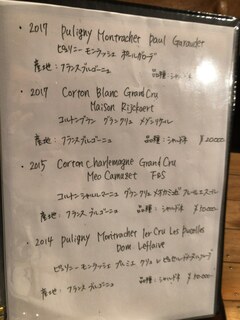 ・2017 Puligny Montrachet Paul Garaudet
ピュリニー モンラッシェ ポール・ガローデ
産地：フランス ブルゴーニュ 品種：シャルドネ
・2017 Corton Blanc Grand Cru
Maison Rijckaert
コルトンブラン グランクリュ メゾンリケール
産地：フランス ブルゴーニュ 品種：シャルドネ
・2015 Corton Charlemagne Grand Cru
Meo Camuzet F&S
コルトンシャルルマーニュ グランクリュ メオカミュゼ フレール・エ・スール
産地：フランス ブルゴーニュ 品種：シャルドネ
・2014 Puligny Montrachet 1er Cru Les Pucelles
Dom. Leflaive
ピュリニー モンラッシェ プルミエ クリュ
産地：フランス ブルゴーニュ 品種：シャルドネ